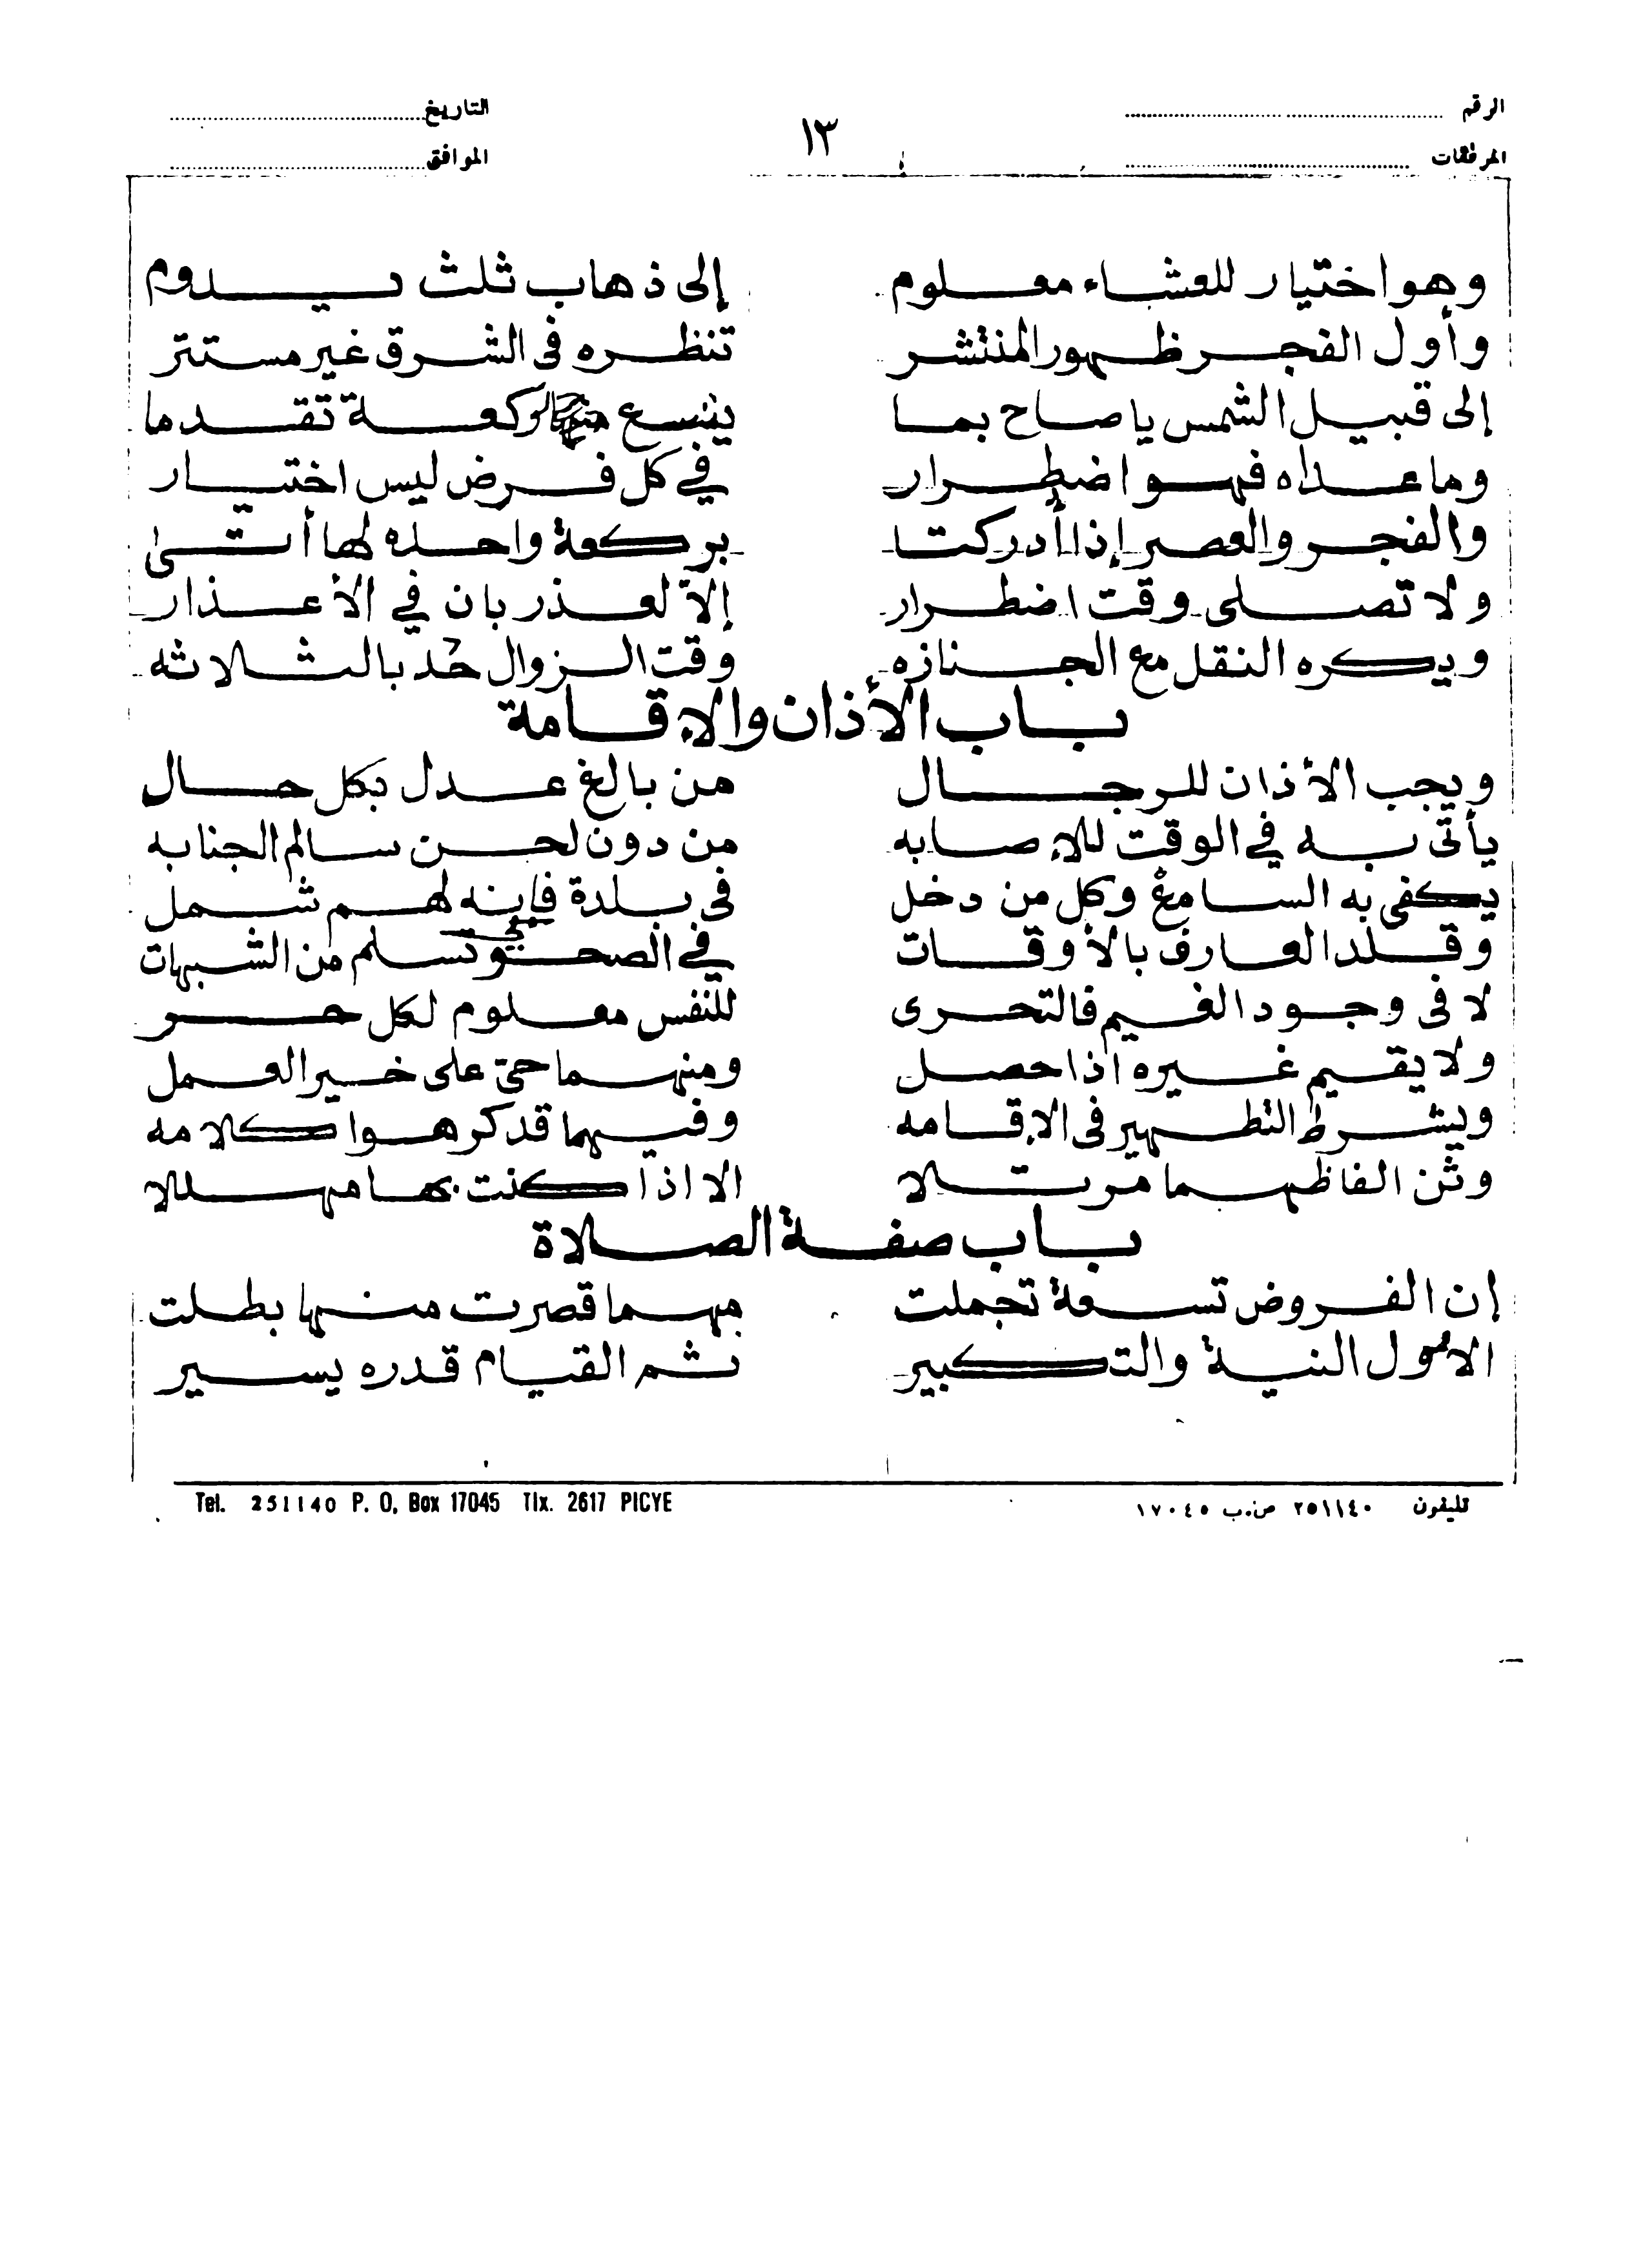 الرقم ........ ١٣ التاريخ ........
المرفقات ........ الموافق ........
وهو اختيار للعشاء معلوم إلى ذهاب ثلث يدوم
وأول الفجر ظهور المنتشر تنظره في الشرق غير مستتر
إلى قبيل الشمس يا صاح بما يتسع لركعة تقدما
وما عداه فهو اضطرار في كل فرض ليس اختيار
والفجر والعصر إذا أدركتا بركعة واحده لها أتى
ولا تصلى وقت اضطرار إلا لعذر بان في الأعذار
ويكره النفل مع الجنازه وقت الزوال خذ بالثلاثه
باب الأذان والإقامة
ويجب الأذان للرجال من بالغ عدل بكل حال
يأتى به في الوقت للإصابه من دون لحن سالم الجنابه
يكفى به السامع وكل من دخل في بلدة فإنه لهم شمل
وقلد العارف بالأوقات في الصحو تسلم من الشبهات
لا فى وجود الغيم فالتحرى للنفس معلوم لكل حر
ولا يقيم غيره اذا حصل ومنهما حي على خير العمل
ويشرط التطهير فى الإقامه وفيهما قد كرهوا كلامه
وثن الفاظهما مرتلا الا اذا كنت بها مهللا
باب صفة الصلاة
إن الفروض تسعة تجملت مهما قصرت منها بطلت
الأول النية والتكبير ثم القيام قدره يسير
تليفون ٢٥١١٤٠ ص.ب ١٧٠٤٥ Tel. 251140 P. O. Box 17045 Tlx. 2617 PICYE